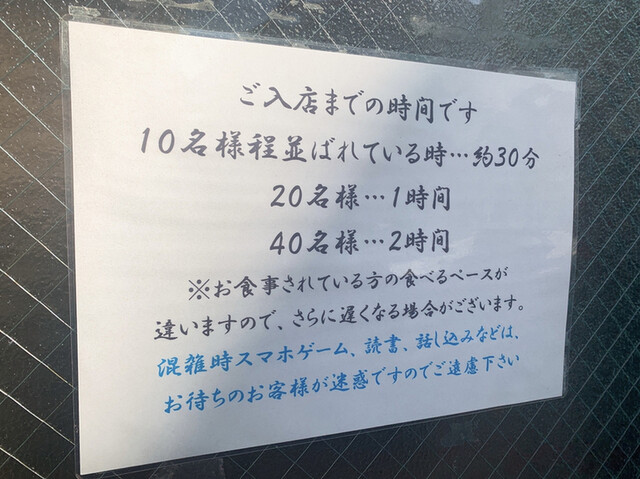 ご入店までの時間です
10名様程並ばれている時…約30分
20名様…1時間
40名様…2時間
※お食事されている方の食べるペースが
違いますので、さらに遅くなる場合がございます。
混雑時スマホゲーム、読書、話し込みなどは、
お待ちのお客様が迷惑ですのでご遠慮下さい